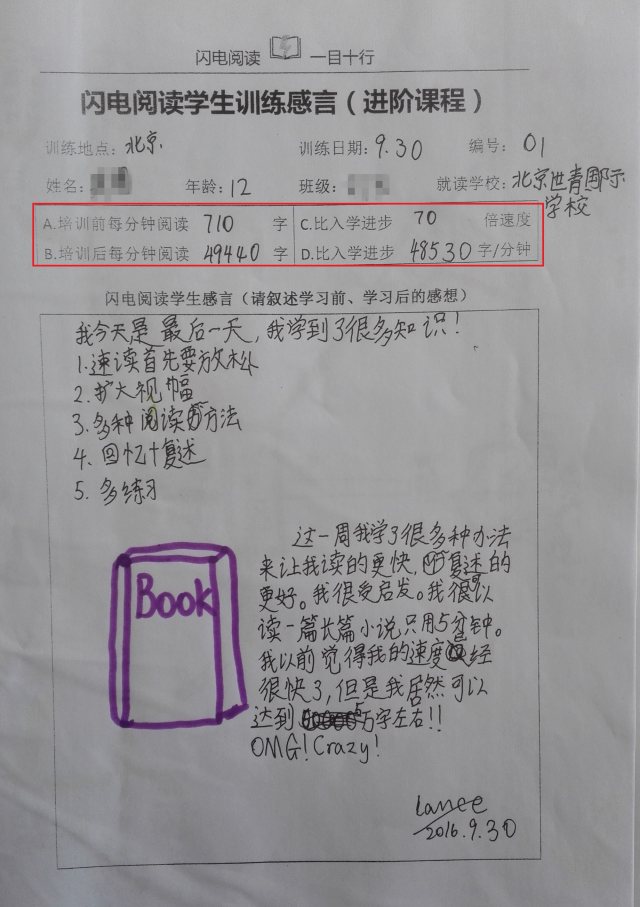 闪电阅读 一目十行
闪电阅读学生训练感言（进阶课程）
训练地点：北京 训练日期：9.30 编号：01
姓名： 年龄：12 班级： 就读学校：北京世青国际
学校
A.培训前每分钟阅读 710 字 C.比入学进步 70 倍速度
B.培训后每分钟阅读 49440 字 D.比入学进步 48530 字/分钟
闪电阅读学生感言（请叙述学习前、学习后的感想）
我今天是最后一天，我学到了很多知识！
1.速读首先要放松
2.扩大视幅
3.多种阅读方法
4.回忆+复述
5.多练习
这一周我学了很多种办法
来让我读的更快，复述的
更好。我很受启发。我可以
读一篇长篇小说只用5分钟。
我以前觉得我的速度已经
很快了，但是我居然可以
达到5万字左右！！
OMG！Crazy！
Book
Lance
2016.9.30